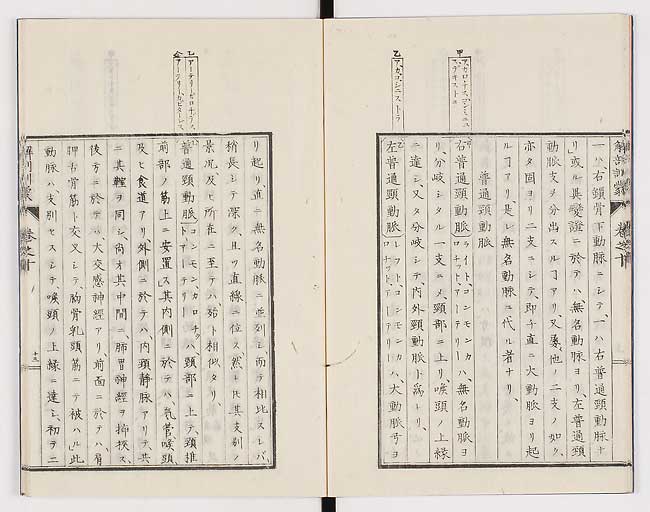 解剖訓蒙　巻之十
甲
乙
ア、カロ、シニストラ
一ハ右鎖骨下動脈ニシテ、一ハ右普通頸動脈ナ
リ」或ル異變證ニ於テハ、無名動脈ヨリ、左普通頸
動脈支ヲ分出スルヿアリ、又屡他ノ二支ノ如ク、
亦タ固ヨリ二支ニシテ、即チ直ニ大動脈ヨリ起
ルヿアリ、是レ無名動脈ニ代ル者ナリ、
普通頸動脈
右普通頸動脈ライト、コンモンカロチット、アーテリーハ、無名動脈ヨ
リ、分岐シタル一支ニメ、頸部ニ上リ、喉頭ノ上縁
ニ達シ、又タ分岐シテ、内外頸動脈ト為ル、
左普通頸動脈レフト、コンモンカロチット、アーテリーハ、大動脈弓ヨ
乙
リ起リ、直ニ無名動脈ニ並列シ、而テ相比スレバ、
稍長シテ深ク、且ツ直線ニ位ス然レ𪜈其支別ノ
景况及ヒ所在ニ至テハ、殆ト相似タリ、
普通頸動脈コンモン、カロチック、アーテリーハ、頸部ニ上テ、頸推
前部ノ筋上ニ安置ス、其内側ニ於テハ、氣管喉頭
及ヒ食道アリ、外側ニ於テハ、内頸静脈アリテ、共
ニ其鞘ヲ同シ、尚オ其中間ニ、肺胃神經ヲ挿挾ス、
後方ニ於テハ、大交感神經アリ、前面ニ於テハ、肩
胛舌骨筋ト交叉シテ、胸骨乳頭筋ニテ被ハル、此
動脈ハ、支別セスシテ、喉頭ノ上縁ニ達シ、初テ二
解剖訓蒙　巻之十